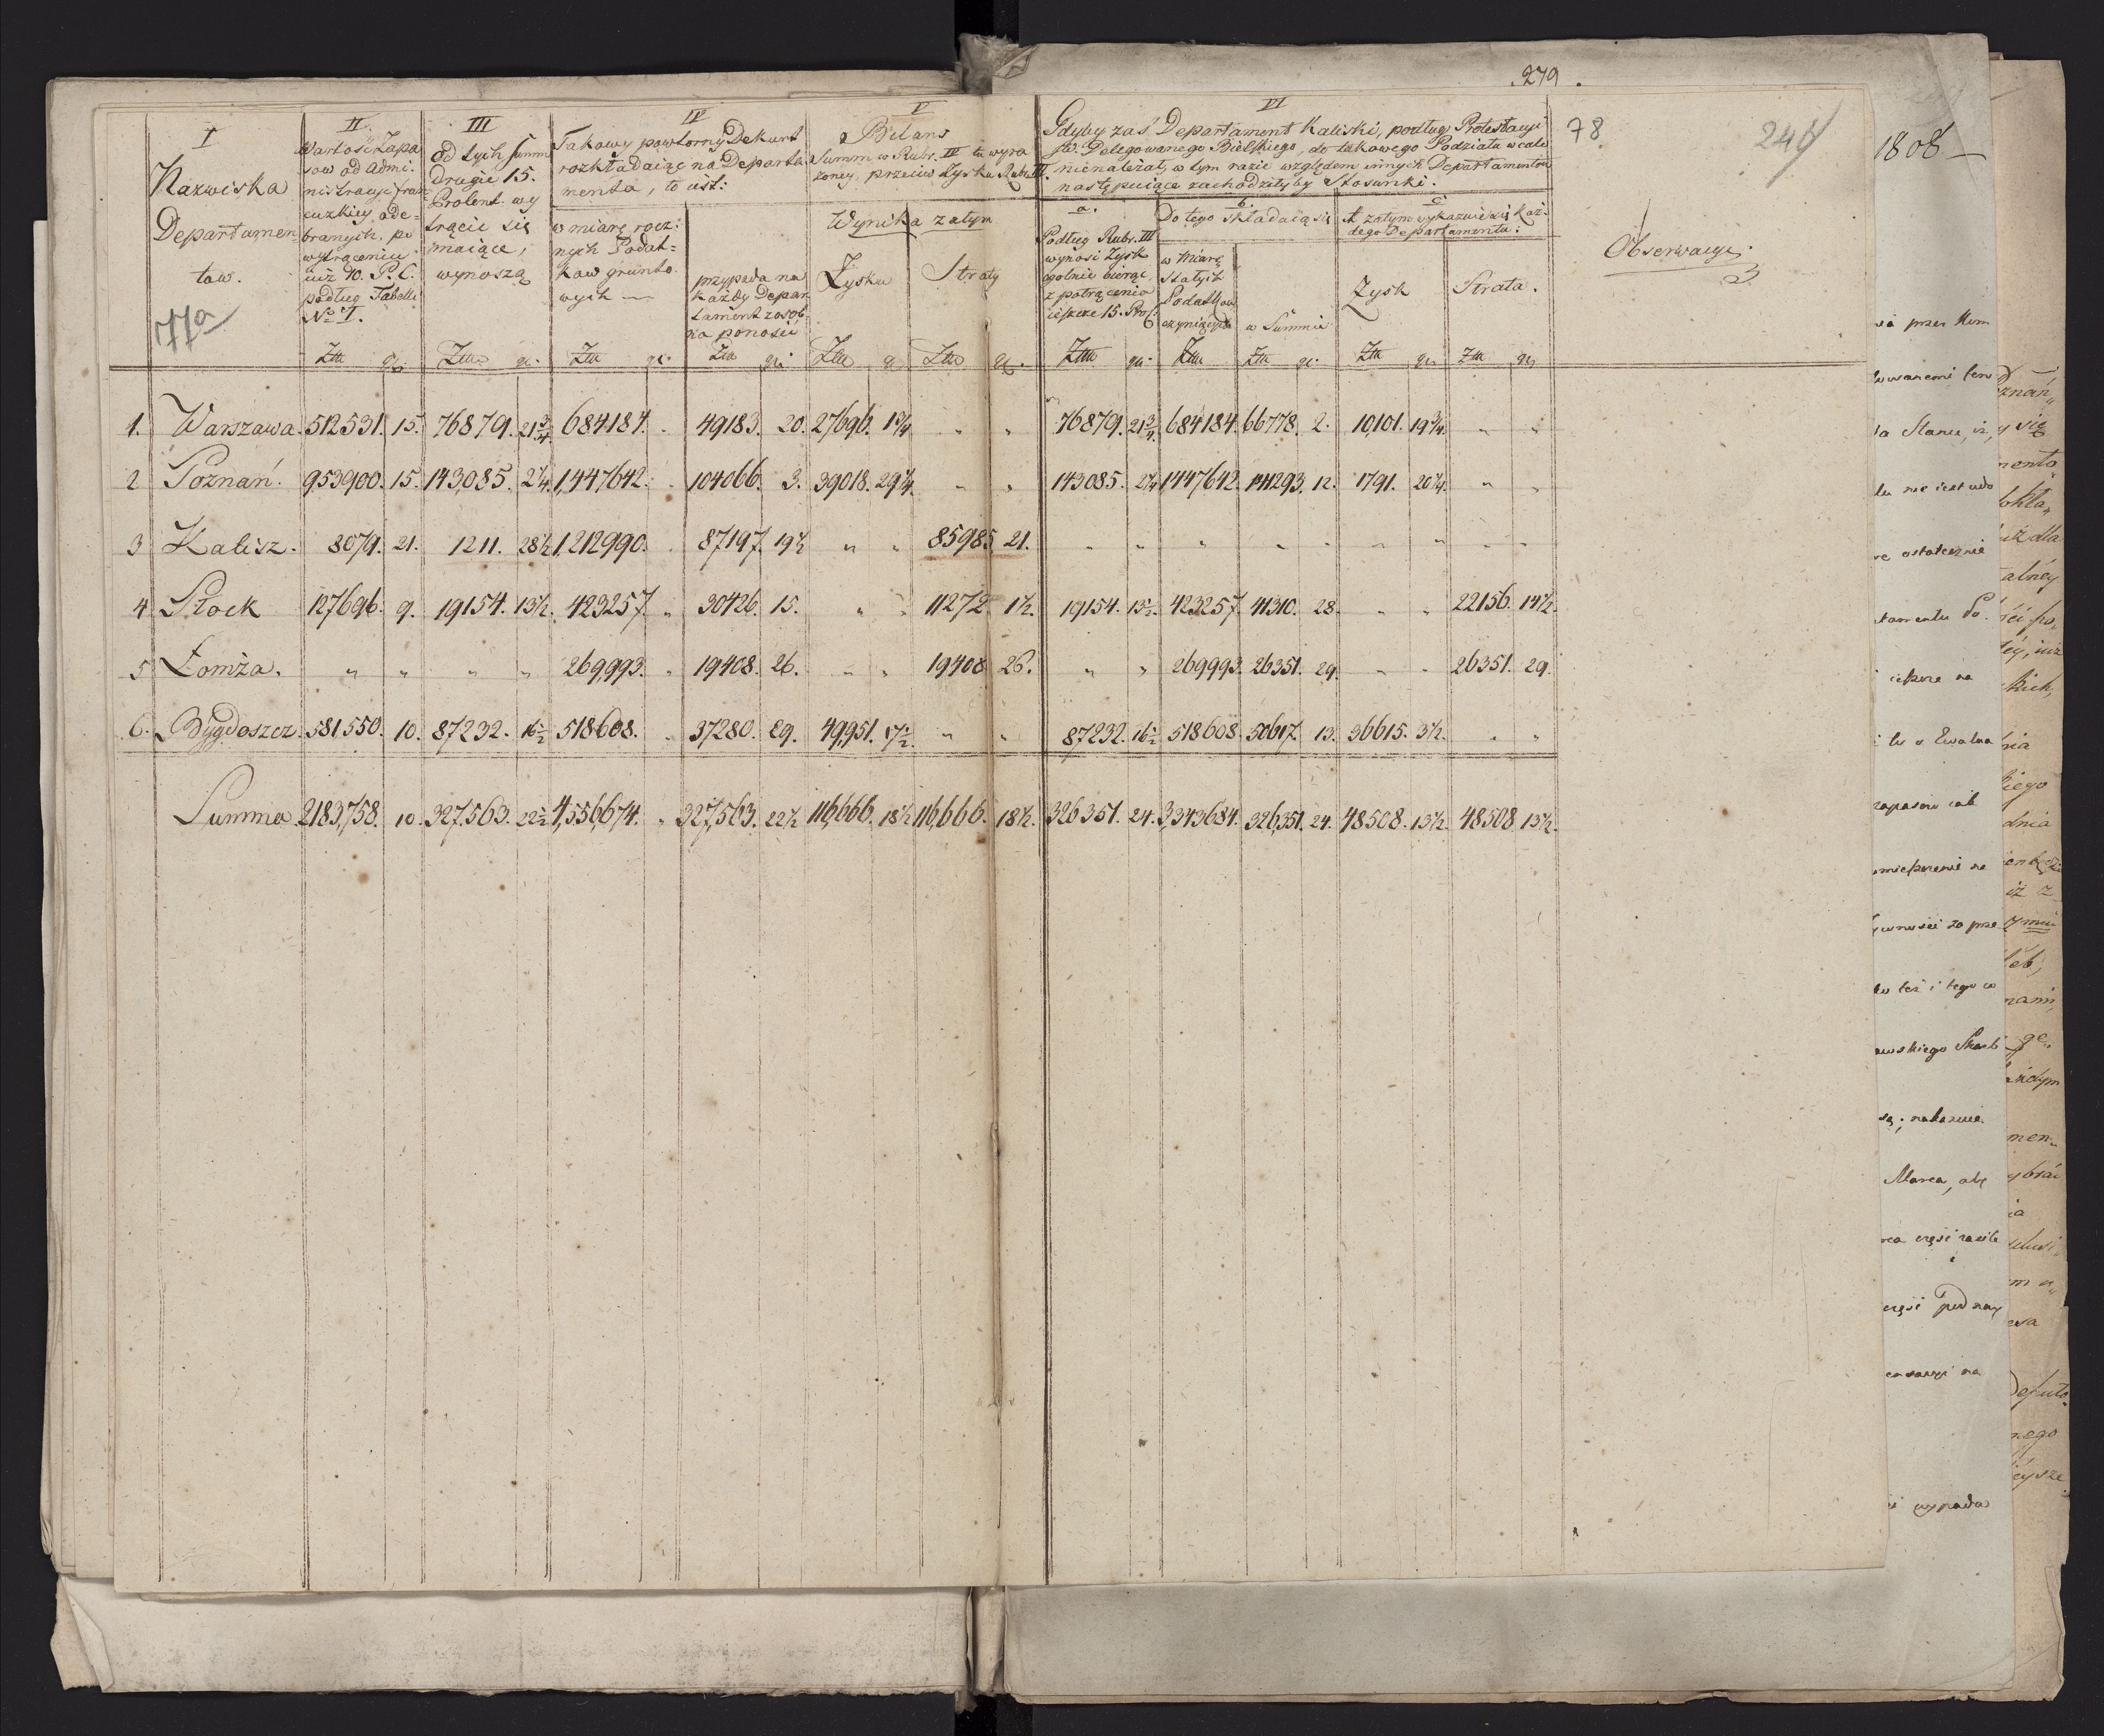 279.
78
244
1808
I
Nazwiska
Departamen-
tow.
77a
II
Wartość Zapa
sow od Admi-
nistracyi fran
cuzkiey ode-
branych, po
wytrąceniu
iuż 10. P. C.
podług Tabelli
No I.
III
Od tych Summ
Drugie 15.
Procent wy
trącić się
maiące,
wynoszą
IV
Takowy powtorny Dekurt
rozkładaiąc na Departa
menta, to iest:
w miarę rocz-
nych Podat-
kow grunto-
wych
przypada na
każdy Depar
tament z osob-
na ponosić
V
Bilans
Summ w Rubr. IV tu wyra
żoney, przeciw Zysku Rubr. III.
Wynika zatym
Zysku
Straty
VI
Gdyby zaś Departament Kaliski, podług Protestacyi
JW. Delegowanego Bielskiego, do takowego Podziału wcale
nienależał, w tym razie względem innych Departamentow
następuiące zachodziłyby Stosunki.
a.
Podług Rubr. III
wynosi Zysk
ogolnie biorąc
z potrącenia
ieszcze 15. Proc:
b.
Do tego składaią się
w Miarę
Stałych
Podatkow
czyniących
w Summie
c
A zatym wykazuie się każ-
dego Departamentu:
Zysk
Strata.
Obserwacye
Ztt gr. Ztt gr. Ztt gr. Ztt gr. Ztt g Ztt gr. Ztt gr. Ztt Ztt gr. Ztt gr. Ztt gr
1. Warszawa. 512531. 15. 76879. 21 3/4 684184. . 49183. 20. 27696. 1 3/4 " " 76879. 21 3/4. 684184. 66778. 2. 10,101. 19 3/4. " "
2 Poznań. 953900. 15. 143,085. 2 1/4. 1,447642. . 104066. 3. 39018. 29 1/4. " " 143085. 2 1/4 1447642. 141293. 12. 1791. 20 1/4. " "
3 Kalisz. 8079. 21. 1211. 28 1/2 1,212990. . 87197. 19 1/2 " " 85985 21. " " " " " " " " "
4 Płock 127696. 9. 19154. 13 1/2. 423257. " 30426. 15. " " 11272. 1 1/2. 19154. 13 1/2. 423257. 41310. 28. " " 22156. 14 1/2.
5 Łomża. " " " " 269,993. " 19408. 26. " " 19408 26. " " 269993. 26351. 29. " " 26351. 29.
6. Bygdoszcz. 581550. 10. 87232. 16 1/2 518608. . 37280. 29. 49,951. 17 1/2. " " 87232. 16 1/2 518608. 50617. 13. 36615. 3 1/2. " "
Summa 2183,758. 10. 327,563. 22 1/2 4,556,674. " 327,563. 22 1/2 116,666. 18 1/2 116,666. 18 1/2. 326351. 24. 3,343684. 326,351. 24. 48508. 13 1/2. 48508 13 1/2.
przez
Stanu,
ostatecznie
na
zapasow
i tego co
Marca, aby
na
wypada